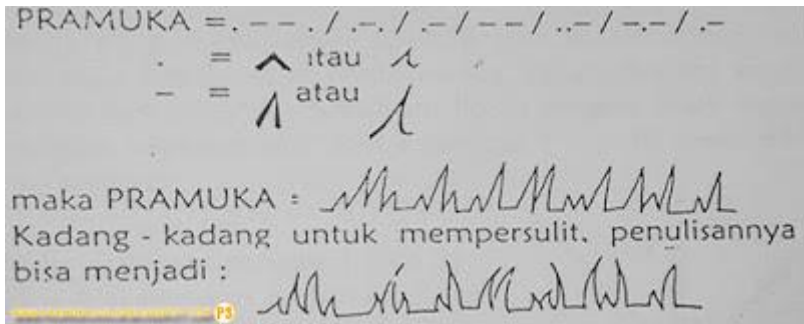 PRAMUKA = . – – . / .–. / .– / – – / ..– / –.– / .–
. = ʌ atau ʌ
– = ʌ atau ʌ
maka PRAMUKA :
Kadang - kadang untuk mempersulit, penulisannya
bisa menjadi :
PS